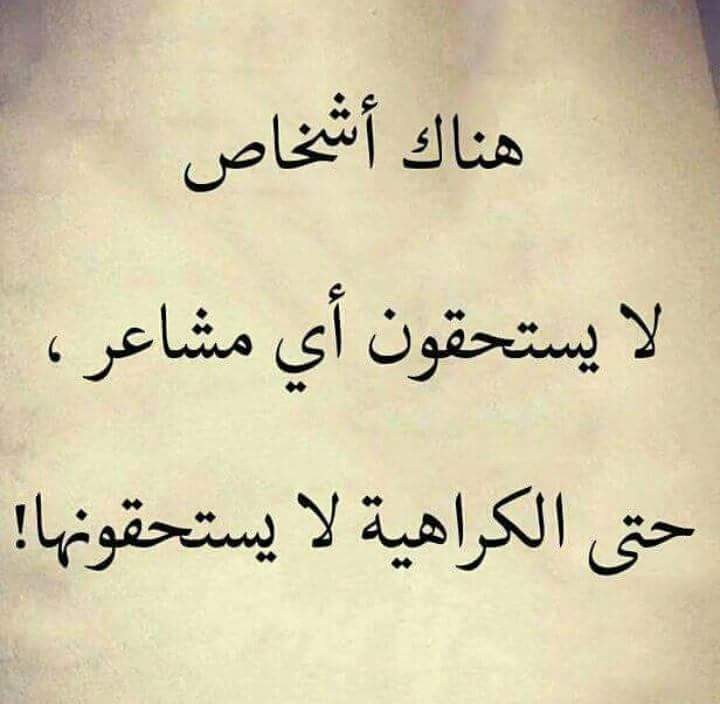 هناك أشخاص
لا يستحقون أي مشاعر ،
حتى الكراهية لا يستحقونها!